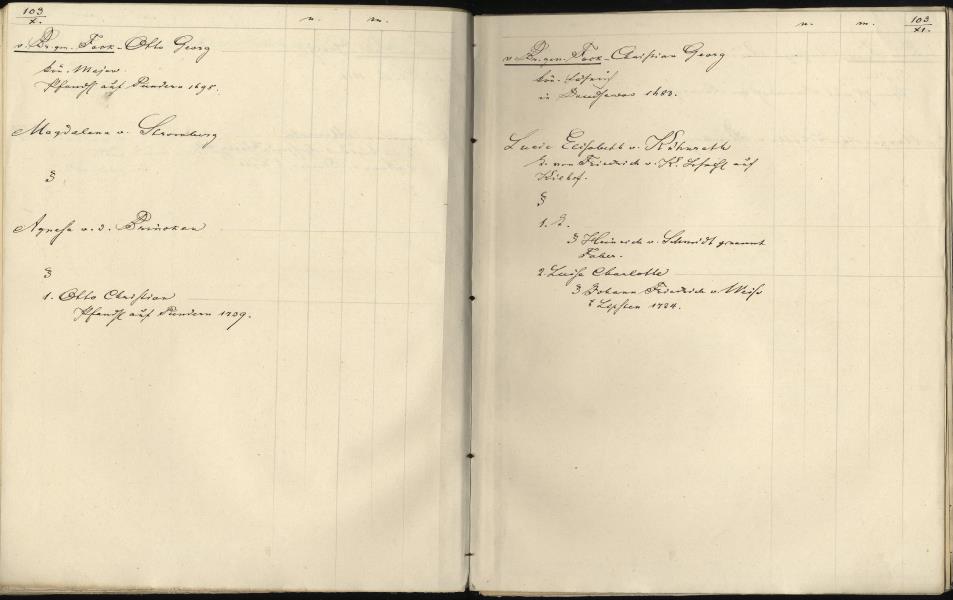 103
X.
n. m.
v. Br. gen. Fock - Otto Georg
kön. Major
Pfandh auf Pundern 1695.
Magdalena v. Stromberg
§
Agnesa v. d. Brincken
§
1. Otto Christian
Pfandh auf Pundern 1709.
n. m.
103
XI.
v. Br. gen. Fock - Christian Georg
kön.
in 1683.
Lucie Elisabeth v. Kühnrath
T. von Friedrich v. K. auf
§
1. T.
§ Heinrich v. Schmidt genannt
Faber.
2. Luise Charlotte
§ Johann Friedrich v. Weiss
1724.